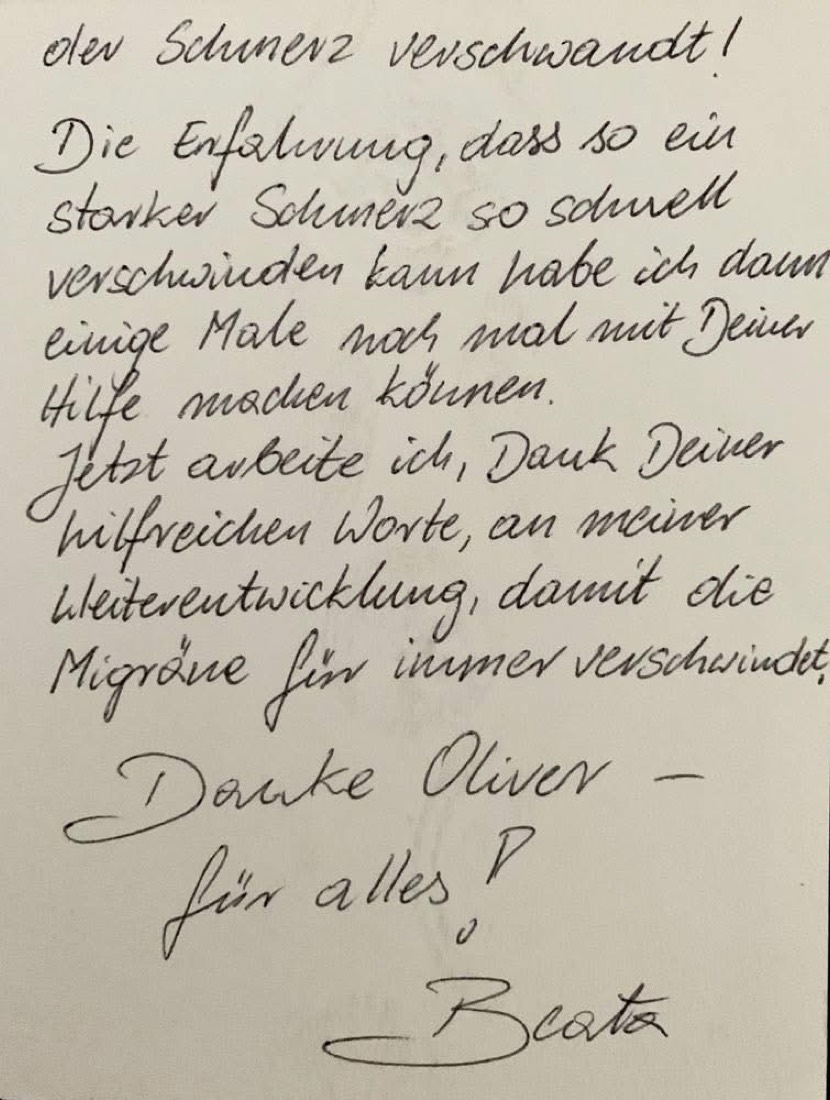 der Schmerz verschwandt!
Die Erfahrung, dass so ein
starker Schmerz so schnell
verschwinden kann habe ich dann
einige Male noch mal mit Deiner
Hilfe machen können.
Jetzt arbeite ich, Dank Deiner
hilfreichen Worte, an meiner
Weiterentwicklung, damit die
Migräne für immer verschwindet.
Danke Oliver –
für alles!
Beata